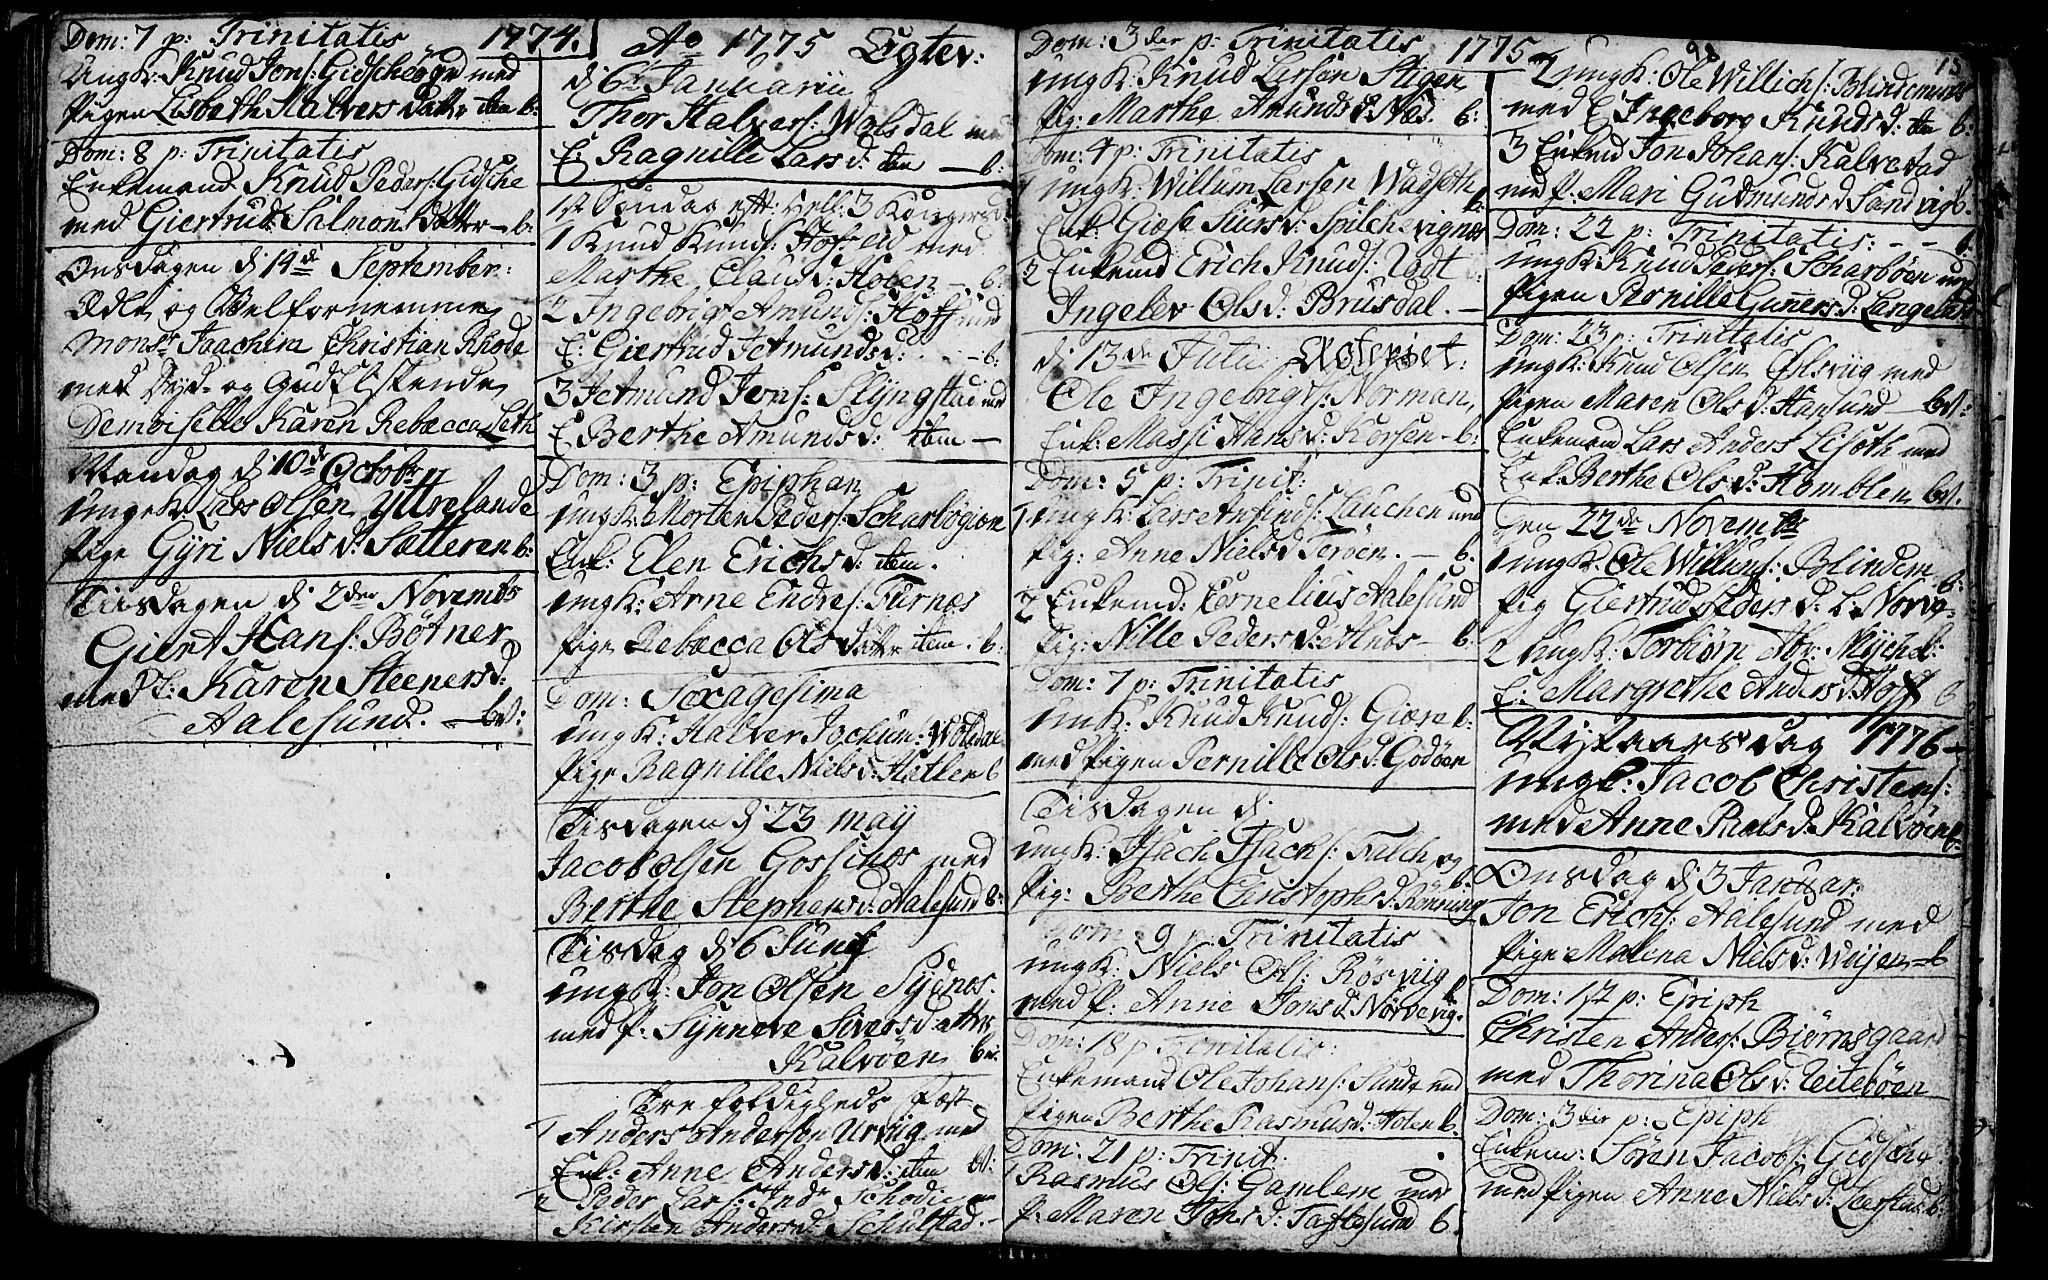 Dom: 7 p: Trinitatis 1774.
Ungk: Knud Jons: Gidscheögd med
Pigen Lisbeth Halvers Datter item b:
Dom: 8 p: Trinitatis
Enkemand Knud Peders: Gidsche
med Giertrud Salmon Datter – b:
Onsdagen d: 14de September:
Ædle og Velfornemme
Monsr Joachim Christian Rhode
med Dyd- og Gudelskende
Demoiselle Karen Rebæcca Leth
Mandag d: 10de Octobr
ungk: Lars Olsen Yttrelande
pige Gÿri Niels d: Sætteren b:
Tiisdagen d: 2den Novembr
Giert Hans: Bötner
med E: Karen Steeners d:
Aalesund. – bet:
Ao 1775 Egtev:
d: 6te Januarii
Thor Halvers: Wolsdal med
E: Ragnille Lars d: item – b:
1st Søndag eft: Hell: 3 Kongersd:
1 Knud Knuds: Hofseid med
Marthe Claus d: Holen – b:
2 Ingebrigt Amunds: Hoff med
E: Giertrud Jetmunds d: – b:
3 Jetmund Jons: Slÿngstad med
E Berthe Amunds d: item –
Dom: 3 p: Epiphan
ungk: Morten Peders: Scharbögion
Enk: Elen Erichs d: item.
ungk: Arne Endres: Furnæs
pige Rebæcca Ols Datter item. b:
Dom: Sexagesima
ungk: Halver Jochum: Wolsdal
Pige Ragnille Niels d: Hatlen b
Tisdagen d: 23 maÿ
Jacob Olsen Goslinæs med
Berthe Stephens d: Aalesund b:
Tisdag d: 6 Junÿ
ungk: Jon Olsen Sÿdnes.
med p. Sÿnneve Sivers datter
Kalvöen bet:
Tre foldigheds Fæst
1 Anders Andersen Urvig med
Enk: Anne Anders d: item bet:
2 Peder Lars: Schodie
Kirsten Anders d: Schulstad. –
Dom: 3der p: Trinitatis 1775
ungk: Knud Larsen Stigen
pig: Marthe Amunds d: Næs. b:
Dom: 4 p: Trinitatis
1 ungk: Willum Larsen Wadseth
Enk: Giese Siurs d: Spilchevignes b:
2 Enkemd Erich Knuds: Vedt
Ingelev Ols d: Brusdal. –
d: 13de Julii
Ole Ingebrigts: Norman
Enk: Massi Hans d: Korsen – b:
Dom: 5 p: Trinit:
1 ungk: Lars Anfinds: Lauchen med
pig: Anne Niels d Teröen. – b:
2 Enkemd: Cornelius Aalesund
Pig: Nille Peders d: Alnes – b:
Dom: 7 p: Trinitatis
ungk: Knud Knuds: Giære b:
med Pigen Pernille Ols d: Godöen
Tisdagen d:
ungk: Isach Isachs: Falch og
pig: Berthe Christophs d: b:
Dom 9 p: Trinitatis
ungk: Niels Ols: Rösviig
med p: Anne Jons d: Nörvevig. b
Dom: 18 p Trinitatis:
Enkemand Ole Johans: Sunde med
Pigen Berthe Rasmus d: Holen b:
Dom: 21 p: Trinit:
1 Rasmus Ols: Gamlem med
p: Maren Jons d: Taftesund b.
2 ungk: Ole Willichs: Blindemnes
med E Ingeborg Knuds d: item b:
3 Enkemd Jon Johans: Kalvestad
med p. Mari Gudmunds d Sandvig b.
Dom: 22 p: Trinitatis: – – b.
ungk: Knud Peders: Scharböen med
Pigen Pernille Guners d: Langeland
Dom: 23 p: Trinitatis
ungk: Knud Olsen Olsviig med
Pigen Maren Ols d: Hansund – bet:
Enkemand Lars Anders Lisøth med
Enk: Berthe Ols d: Homblen bet.
Den 22de Novembr
1 ungk: Ole Willums: Blindem b:
Pig Giertrud Peders d: L: Norve.
2 ungk: Torbiörn
E: Margrethe Anders d: Hoff b
Nÿtaarsdag 1776 –
ungk: Jacob Christens:
med Anne Poels d: Kalvöen b:
Onsdag d: 3 Januar:
Jon Erichs: Aalesund med
Pige Malena Niels d: Weÿen – b
Dom: 1st p: Epiph
Christen Anders: Biörnsgaard
med Thorina Ols d: Leiteböen
Dom: 3der p: Epiph
Enkem: Sören Jacobs: Gidsche
med Pigen Anne Niels d: Leerstad b.